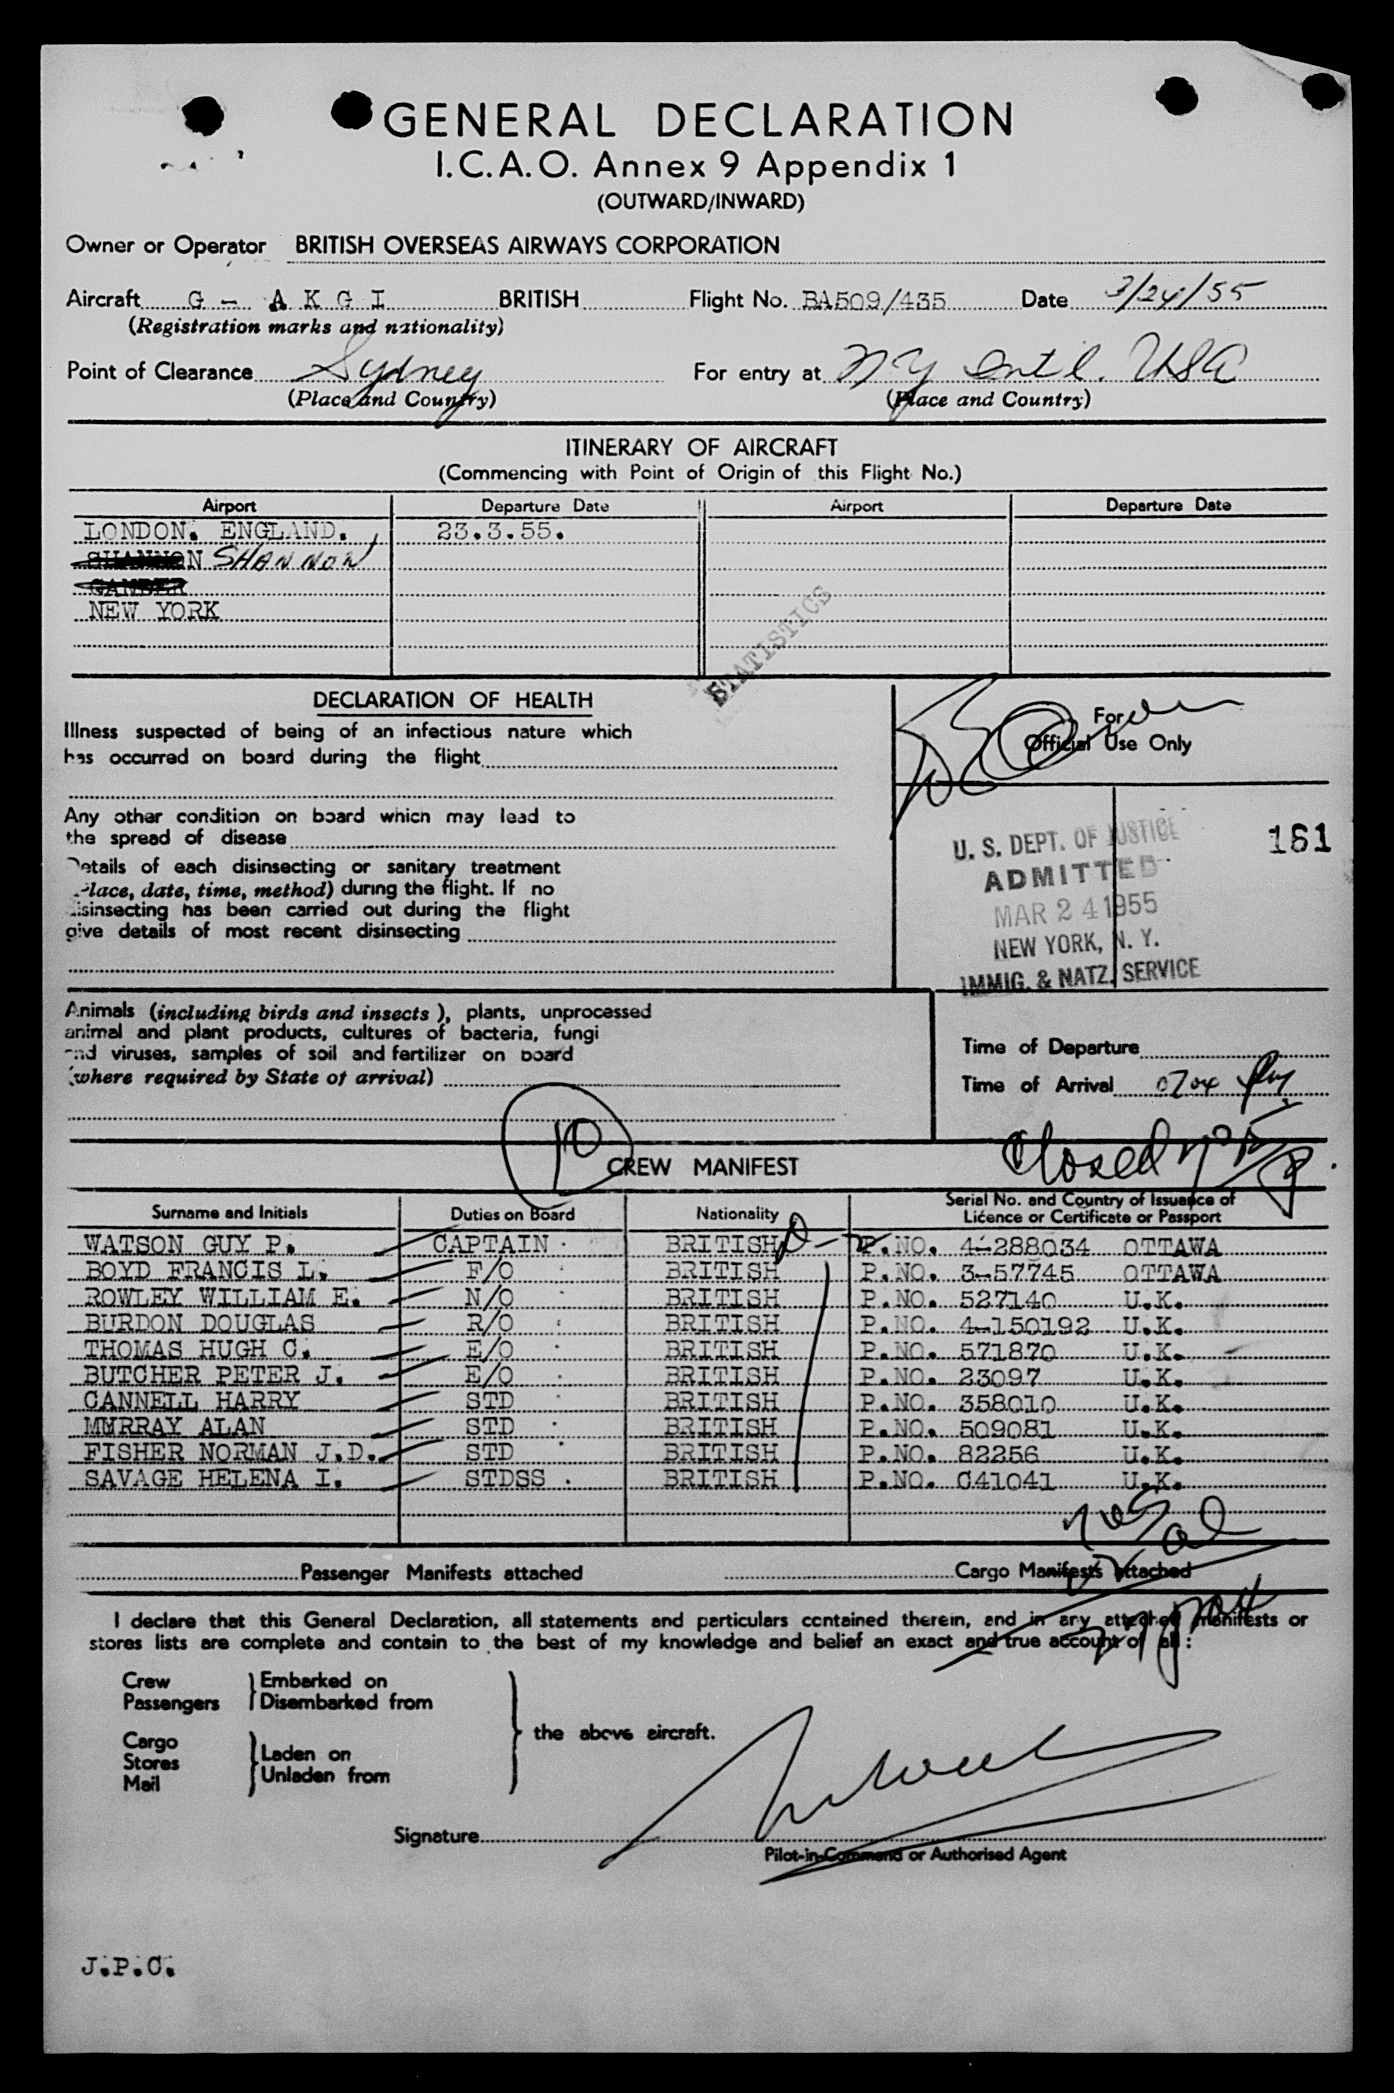 GENERAL DECLARATION
I.C.A.O. Annex 9 Appendix 1
(OUTWARD/INWARD)
Owner or Operator BRITISH OVERSEAS AIRWAYS CORPORATION
Aircraft G - A K G I BRITISH Flight No. BA509/435 Date 3/24/55
(Registration marks and nationality)
Point of Clearance Sydney For entry at NY Int'l. USA
(Place and Country) (Place and Country)
ITINERARY OF AIRCRAFT
(Commencing with Point of Origin of this Flight No.)
Airport Departure Date Airport Departure Date
LONDON. ENGLAND. 23.3.55.
SHANNON SHANNON
GANDER
NEW YORK
STATISTICS
DECLARATION OF HEALTH
Illness suspected of being of an infectious nature which
has occurred on board during the flight
For
Official Use Only
Any other condition on board which may lead to
the spread of disease
Details of each disinsecting or sanitary treatment
(Place, date, time, method) during the flight. If no
disinsecting has been carried out during the flight
give details of most recent disinsecting
U. S. DEPT. OF JUSTICE
ADMITTED
MAR 24 1955
NEW YORK, N. Y.
IMMIG. & NATZ. SERVICE
161
Animals (including birds and insects), plants, unprocessed
animal and plant products, cultures of bacteria, fungi
and viruses, samples of soil and fertilizer on board
(where required by State of arrival)
Time of Departure
Time of Arrival 0704
Closed
10
CREW MANIFEST
Surname and Initials Duties on Board Nationality Serial No. and Country of Issuance of Licence or Certificate or Passport
WATSON GUY P. CAPTAIN BRITISH P.NO. 4-288034 OTTAWA
BOYD FRANCIS L. F/O BRITISH P.NO. 3-57745 OTTAWA
ROWLEY WILLIAM E. N/O BRITISH P.NO. 527140 U.K.
BURDON DOUGLAS R/O BRITISH P.NO. 4-150192 U.K.
THOMAS HUGH C. E/O BRITISH P.NO. 571870 U.K.
BUTCHER PETER J. E/O BRITISH P.NO. 23097 U.K.
CANNELL HARRY STD BRITISH P.NO. 358010 U.K.
MURRAY ALAN STD BRITISH P.NO. 509081 U.K.
FISHER NORMAN J.D. STD BRITISH P.NO. 82256 U.K.
SAVAGE HELENA I. STDSS BRITISH P.NO. C41041 U.K.
Passenger Manifests attached Cargo Manifests attached
I declare that this General Declaration, all statements and particulars contained therein, and in any attached manifests or
stores lists are complete and contain to the best of my knowledge and belief an exact and true account of all :
Crew Embarked on
Passengers Disembarked from
the above aircraft.
Cargo
Stores Laden on
Mail Unladen from
Signature
Pilot-in-Command or Authorised Agent
J.P.C.